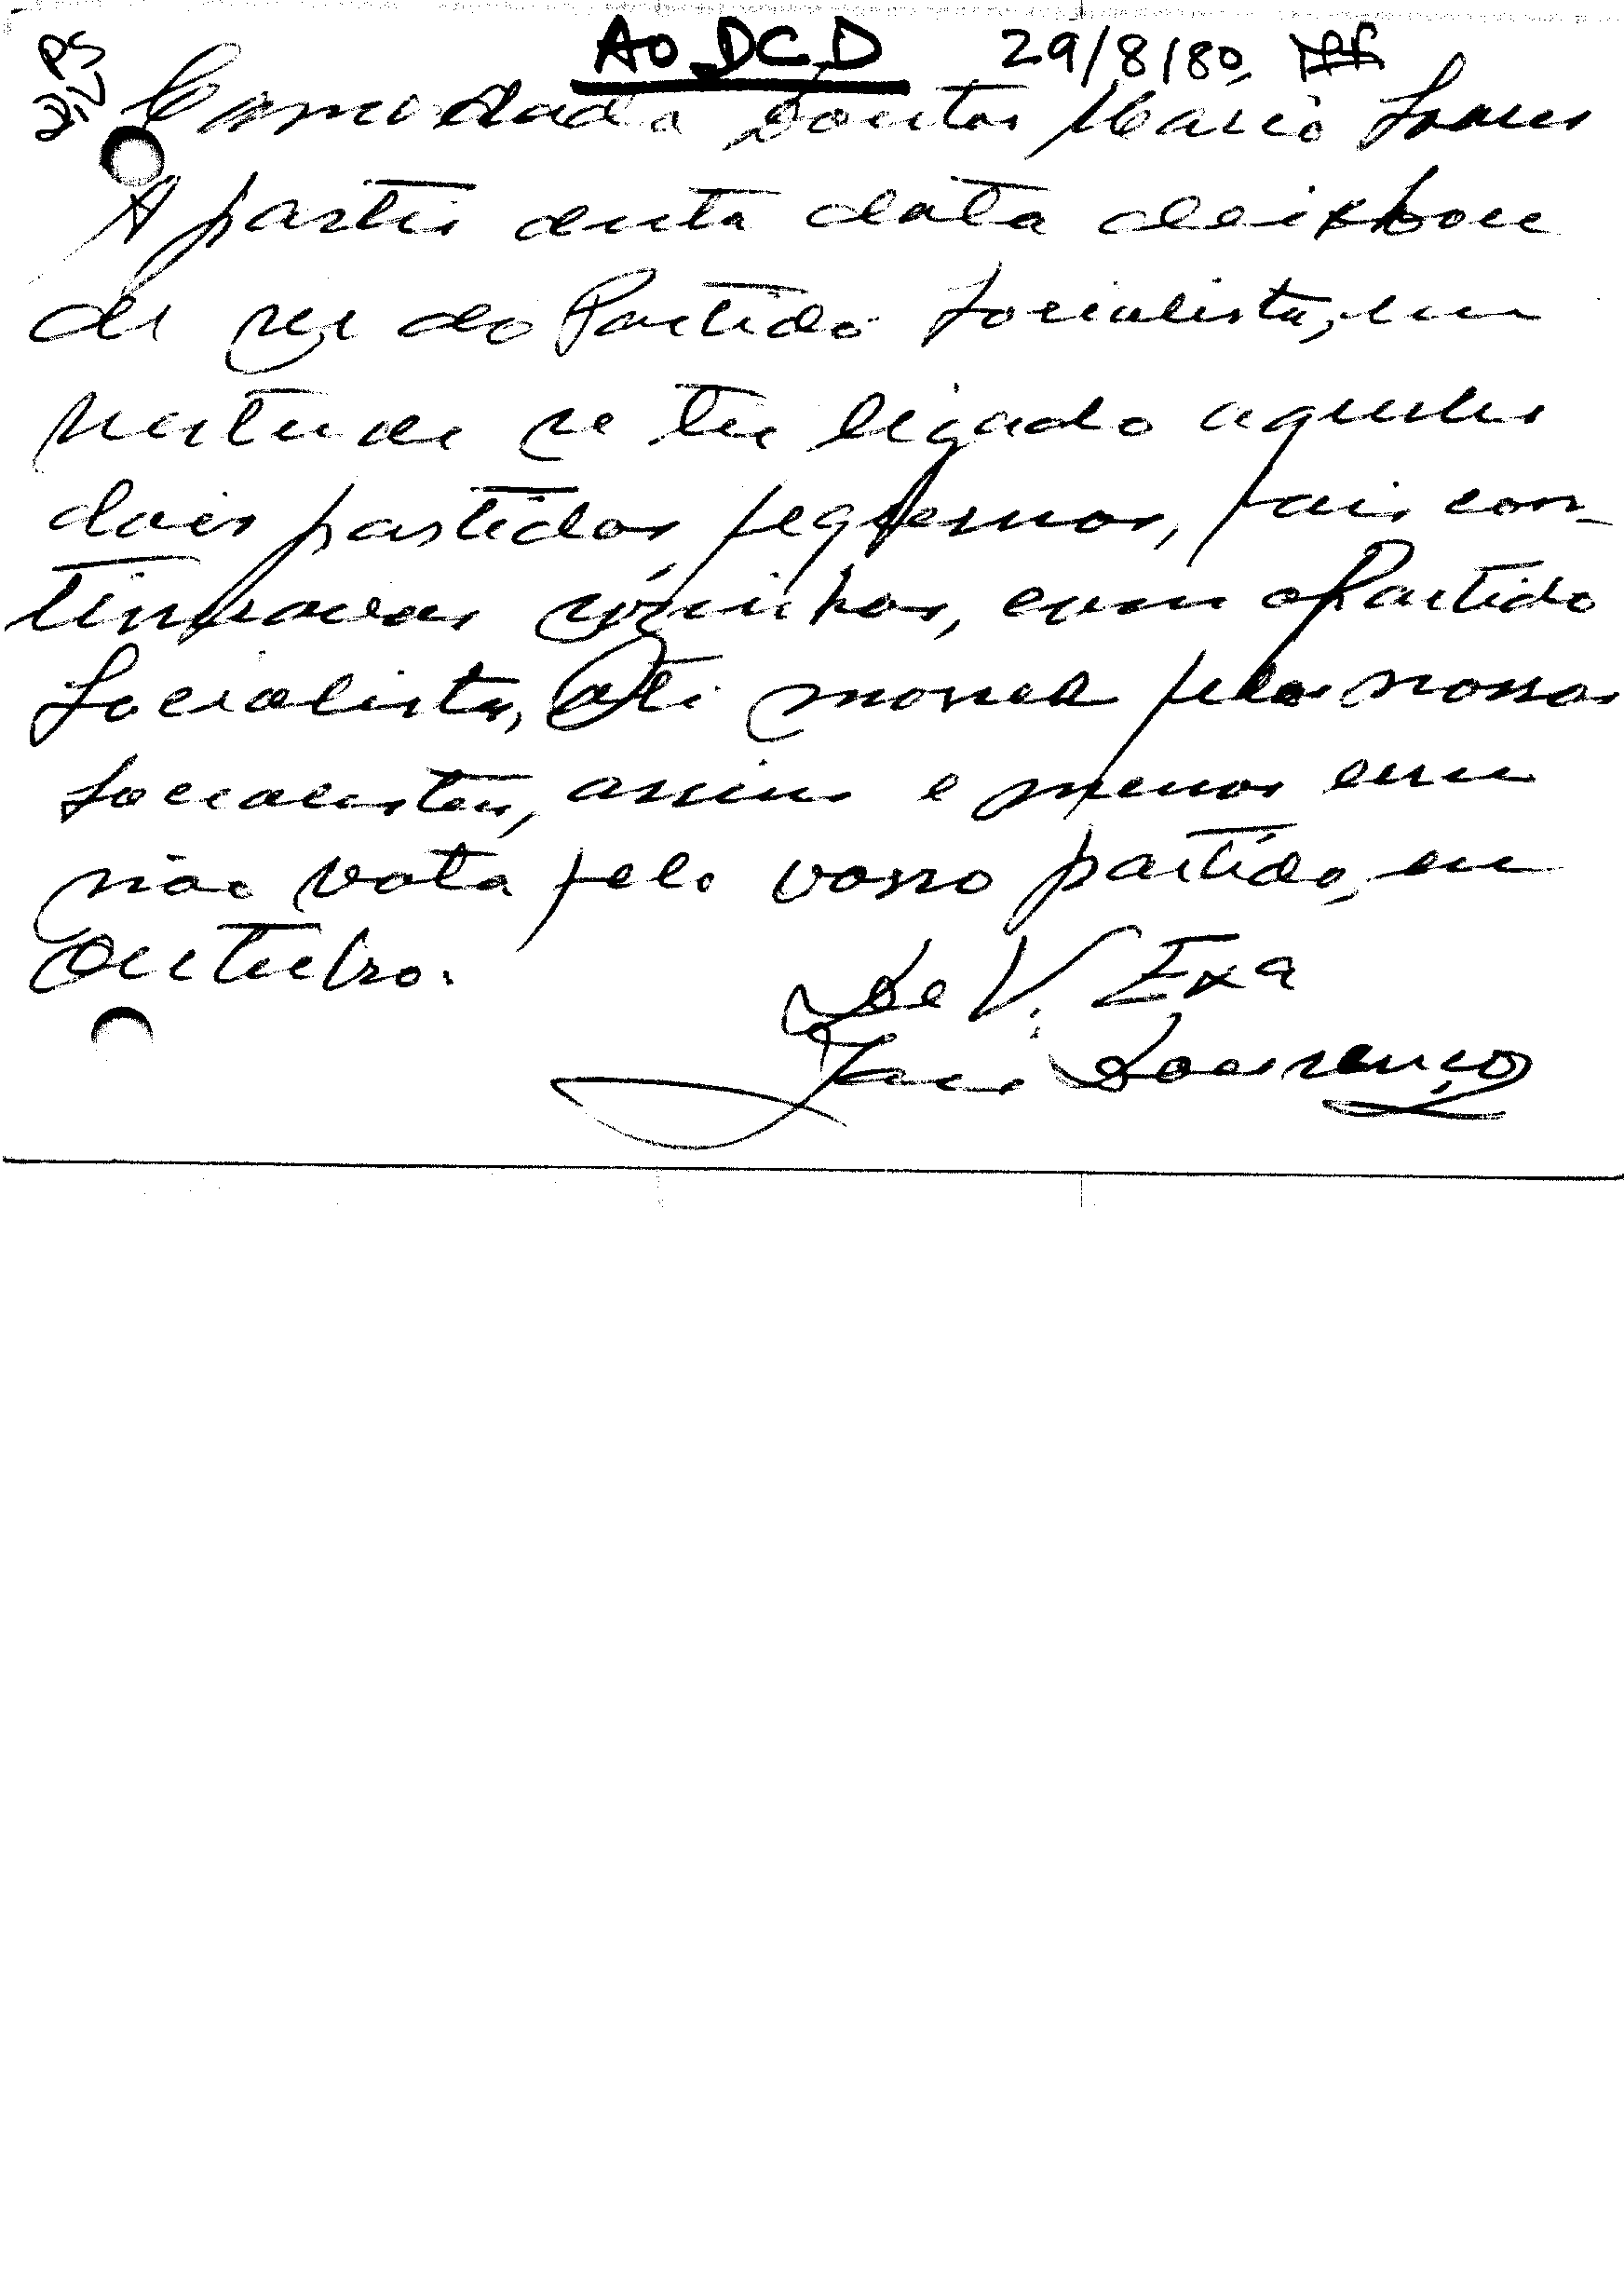 PS
Ao DCD 29/8/80
Camarada Doutor Mário Soares
A partir desta data deixou
de ser do Partido Socialista, em
virtude se ter ligado aqueles
dois partidos pequenos, pais con-
tinuavas sòzinhos, com o Partido
Socialista, até morrer pelos nossos
Socialistas, assim e menos um
não vota pelo vosso partido, em
Outubro.
De V. Exa
Lourenço